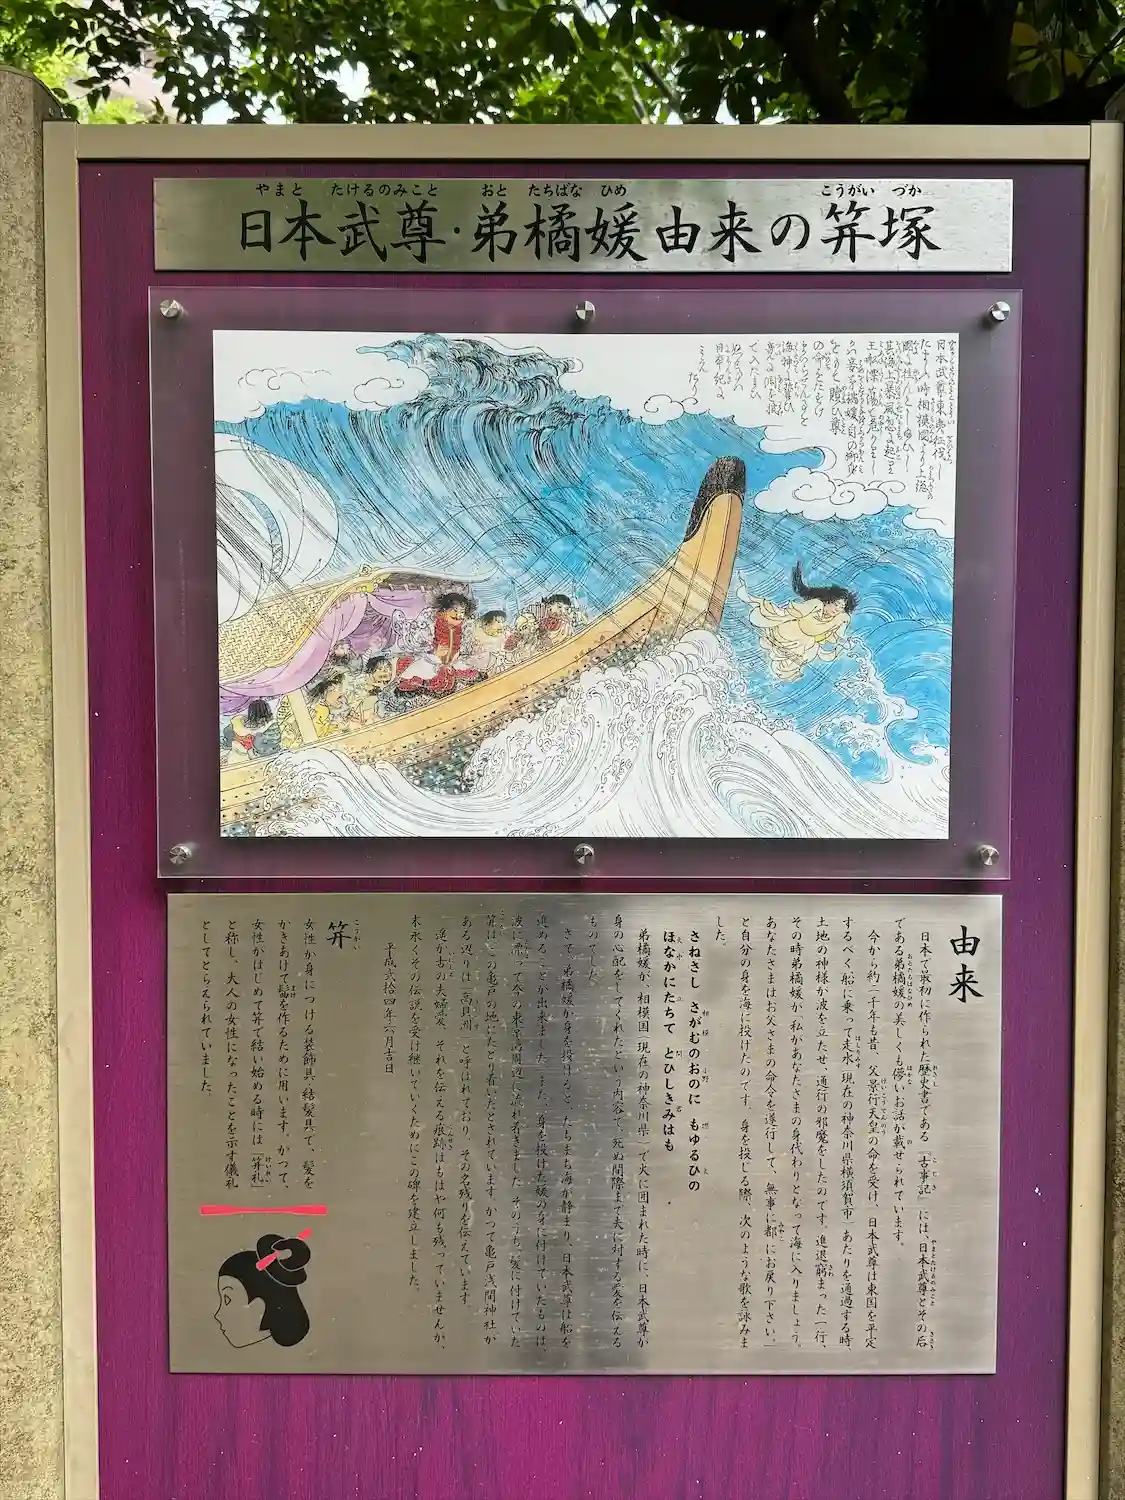 やまと たけるのみこと おと たちばな ひめ こうがい づか
日本武尊・弟橘媛由来の笄塚
由来
日本で最初に作られた歴史書である「古事記」には、日本武尊とその后
である弟橘媛の美しくも儚いお話が載せられています。
今から約二千年も昔、父景行天皇の命を受け、日本武尊は東国を平定
するべく船に乗って走水(現在の神奈川県横須賀市)あたりを通過する時、
土地の神様が波を立たせ、通行の邪魔をしたのです。進退窮まった一行、
その時弟橘媛が、「私があなたさまの身代わりとなって海に入りましょう。
あなたさまはお父さまの命令を遂行して、無事に都にお戻り下さい。」
と自分の身を海に投げたのです。身を投じる際、次のような歌を詠みま
した。
さねさし さがむのおのに もゆるひの
ほなかにたちて とひしきみはも
弟橘媛が、相模国(現在の神奈川県)で火に囲まれた時に、日本武尊が
身の心配をしてくれたという内容で、死ぬ間際まで夫に対する愛を伝える
ものでした。
さて、弟橘媛が身を投げると、たちまち海が静まり、日本武尊は船を
進めることが出来ました。また、身を投げた媛の身に付けていたものは、
波に漂って今の東京湾周辺に流れ着きました。そのうち、髪に付けていた
笄はこの亀戸の地にたどり着いたとされています。かつて亀戸浅間神社が
ある辺りは「高貝洲」と呼ばれており、その名残りを伝えています。
遥か古の夫婦愛、それを伝える痕跡はもはや何も残っていませんが、
末永くその伝説を受け継いでいくためにこの碑を建立しました。
平成弐拾四年六月吉日
笄
こうがい
女性が身につける装飾具・結髪具で、髪を
かきあげて髷を作るために用います。かつて、
女性がはじめて笄で結い始める時には「笄礼」
と称し、大人の女性になったことを示す儀礼
としてとらえられていました。